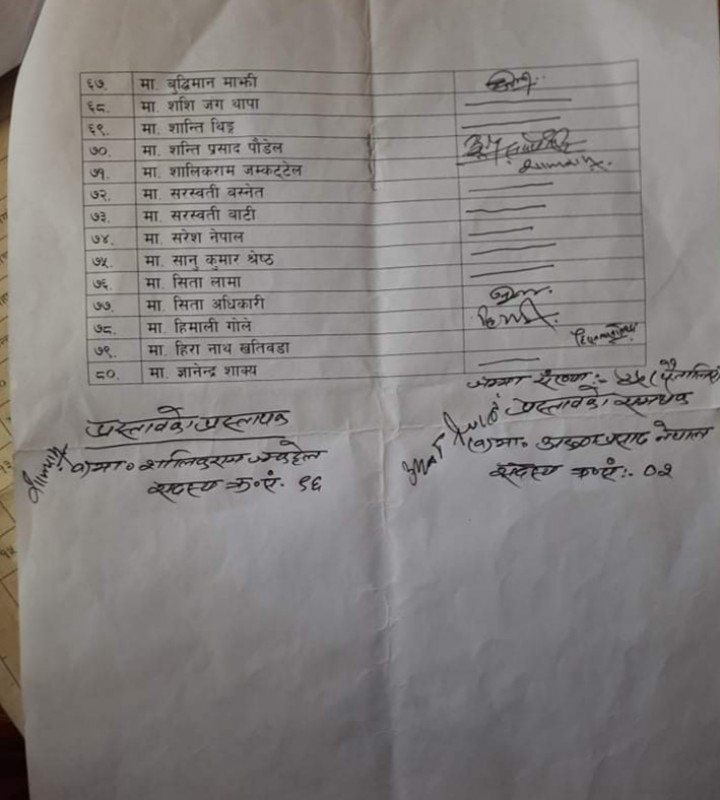 ६७. मा. बुद्धिमान माझी
६८. मा. शशि जंग थापा
६९. मा. शान्ति थिङ्ग
७०. मा. शन्ति प्रसाद पौडेल
७१. मा. शालिकराम जम्कट्टेल
७२. मा. सरस्वती बस्नेत
७३. मा. सरस्वती बाटी
७४. मा. सरेश नेपाल
७५. मा. सानु कुमार श्रेष्ठ
७६. मा. सिता लामा
७७. मा. सिता अधिकारी
७८. मा. हिमाली गोले
७९. मा. हिरा नाथ खतिवडा
८०. मा. ज्ञानेन्द्र शाक्य
जम्मा संख्या:-
प्रस्तावको प्रस्तावक
प्रस्तावको समर्थक
मा. शालिकराम जम्कट्टेल
मा. प्रसाद नेपाल
सदस्य क्र.सं. ९६
सदस्य क्र.सं:- ०२